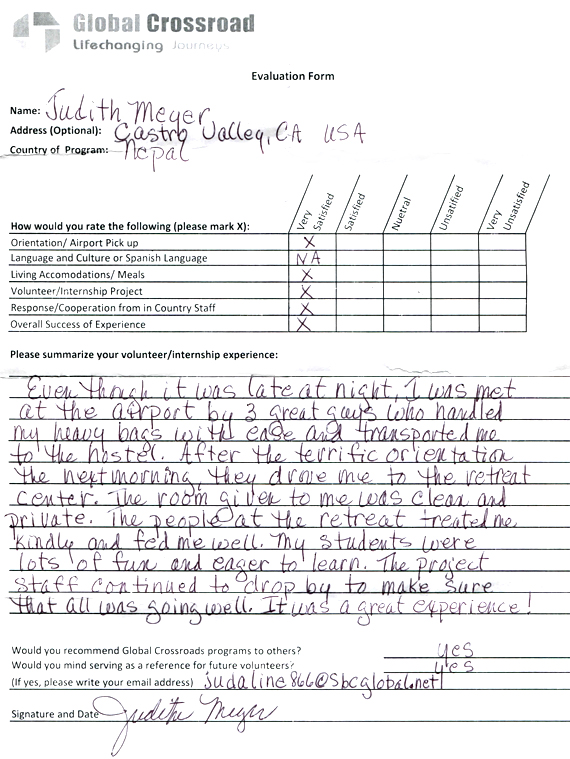 Global Crossroad
Lifechanging Journeys
Evaluation Form
Name: Judith Meyer
Address (Optional): Castro Valley, CA USA
Country of Program: Nepal
How would you rate the following (please mark X): Very Satisfied Satisfied Nuetral Unsatified Very Unsatisfied
Orientation/ Airport Pick up X
Language and Culture or Spanish Language NA
Living Accomodations/ Meals X
Volunteer/Internship Project X
Response/Cooperation from in Country Staff X
Overall Success of Experience X
Please summarize your volunteer/internship experience:
Even though it was late at night, I was met
at the airport by 3 great guys who handled
my heavy bags with ease and transported me
to the hostel. After the terrific orientation
the next morning, they drove me to the retreat
center. The room given to me was clean and
private. The people at the retreat treated me
kindly and fed me well. My students were
lots of fun and eager to learn. The project
staff continued to drop by to make sure
that all was going well. It was a great experience!
Would you recommend Global Crossroads programs to others? yes
Would you mind serving as a reference for future volunteers? yes
(If yes, please write your email address) judaline866@sbcglobal.net
Signature and Date Judith Meyer